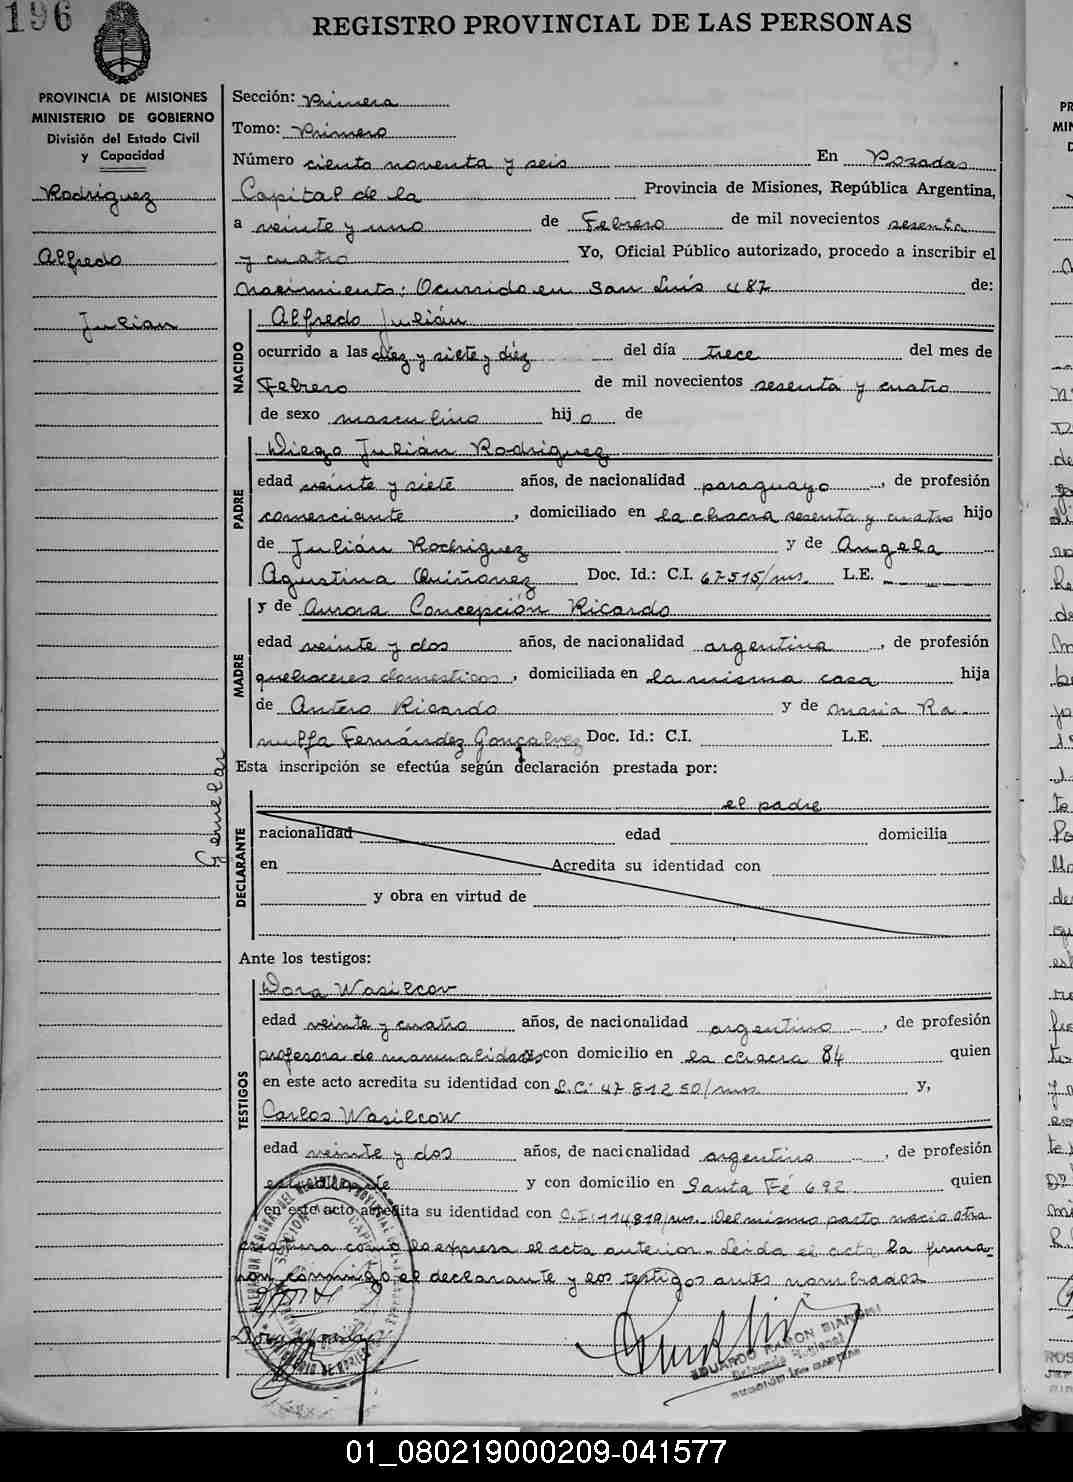 196
REGISTRO PROVINCIAL DE LAS PERSONAS
PROVINCIA DE MISIONES
MINISTERIO DE GOBIERNO
División del Estado Civil
y Capacidad
Rodriguez
Alfredo
Julian
Gemelar
Sección: Primera
Tomo: Primero
Número ciento noventa y seis En Posadas
Capital de la Provincia de Misiones, República Argentina,
a veinte y uno de Febrero de mil novecientos sesenta
y cuatro Yo, Oficial Público autorizado, procedo a inscribir el
Nacimiento; Ocurrido en San Luis 487 de:
NACIDO
Alfredo Julián
ocurrido a las diez y siete y diez del día trece del mes de
Febrero de mil novecientos sesenta y cuatro
de sexo masculino hij o de
PADRE
Diego Julián Rodriguez
edad veinte y siete años, de nacionalidad paraguayo, de profesión
comerciante, domiciliado en la chacra sesenta y cuatro hijo
de Julián Rodriguez y de Angela
Agustina Quiñonez Doc. Id.: C.I. 67515/ms. L.E.
MADRE
y de Aurora Concepción Ricardo
edad veinte y dos años, de nacionalidad argentina, de profesión
quehaceres domesticos, domiciliada en la misma casa hija
de Antero Ricardo y de Maria Ra-
mulfa Fernández Gonçalvez Doc. Id.: C.I. L.E.
Esta inscripción se efectúa según declaración prestada por:
el padre
DECLARANTE
nacionalidad edad domicilia
en Acredita su identidad con
y obra en virtud de
Ante los testigos:
TESTIGOS
Dora Wasilcow
edad veinte y cuatro años, de nacionalidad argentino, de profesión
profesora de manualidades con domicilio en la chacra 84 quien
en este acto acredita su identidad con L.C: 4781250/ms y,
Carlos Wasilcow
edad veinte y dos años, de nacionalidad argentino, de profesión
estudiante y con domicilio en Santa Fé 692 quien
en este acto acredita su identidad con C.I: 114819/ms. Del mismo parto nacio otra
criatura como lo expresa el acta anterior. Leida el acta, la firma-
ron conmigo el declarante y los testigos antes nombrados
EDUARDO RAMON BIANCHI
01_080219000209-041577